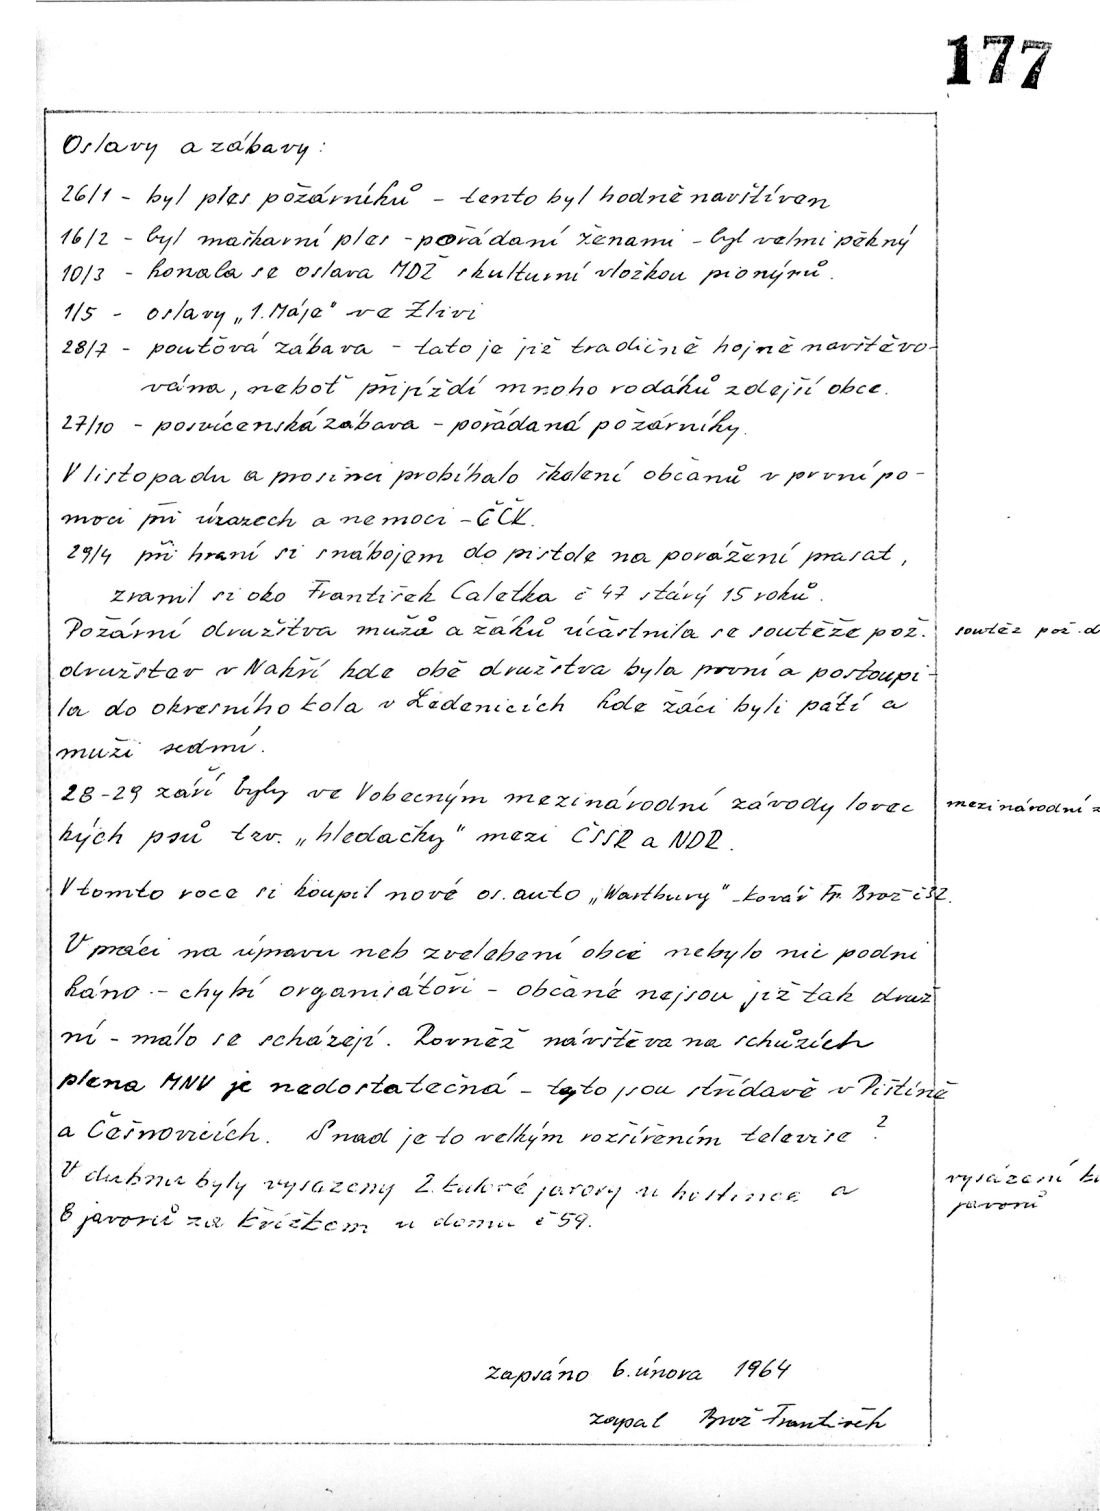 177
Oslavy a zábavy:
26/1 - byl ples požárníků - tento byl hodně navštíven
16/2 - byl maškarní ples - pořádaní ženami - byl velmi pěkný
10/3 - konala se oslava MDŽ s kulturní vložkou pionýrů.
1/5 - oslavy „1. Máje" ve Zlivi
28/7 - pouťová zábava - tato je již tradičně hojně navštěvo-
vána, neboť přijíždí mnoho rodáků zdejší obce.
27/10 - posvícenská zábava - pořádaná požárníky.
V listopadu a prosinci probíhalo školení občanů v první po-
moci při úrazech a nemoci - ČČK.
29/4 při hraní si s nábojem do pistole na porážení prasat,
zranil si oko František Caletka č 47 stárý 15 roků.
Požární družstva mužů a žáků účastnila se soutěže pož. soutěž pož. d
družstev v Nákří kde obě družstva byla první a postoupi-
la do okresního kola v Ledenicích kde žáci byli pátí a
muži sedmí.
28-29 září byly ve Vobecným mezinárodní závody lovec mezinárodní z
kých psů tzv. „hledačky" mezi ČSSR a NDR.
V tomto roce si koupil nové os. auto „Wartburg" - kovář Fr. Brož č 32.
V práci na úpravu neb zvelebení obcé nebylo nic podni
káno - chybí organisátoři - občané nejsou již tak druž
ní - málo se scházejí. Rovněž návštěva na schůzích
plena MNV je nedostatečná - tyto jsou střídavě v Pištíně
a Češnovicích. Snad je to velkým rozšířením televise?
V dubnu byly vysázeny 2. kulové javory u hostince a vysázení
8 javorů za křížkem u domu č 59. javorů
zapsáno 6. února 1964
zapsal Brož František